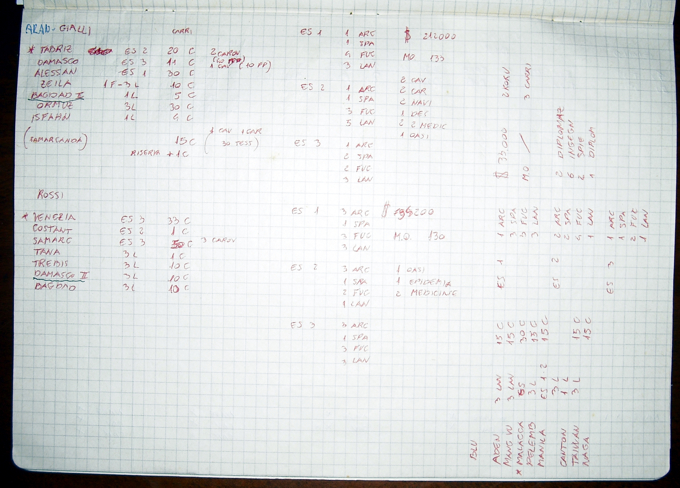 ARAN - GIALLI
CARRI
* TABRIZ ES 2 20 C 2 CAROV
DAMASCO ES 3 11 C
ALESSAN ES 1 30 C 1 CAV (10 PP)
ZEILA 1F-3L 10 C
BAGDAD II 1L 5 C
ORMUZ 3L 30 C
ISFAHN 1L 6 C
(SAMARCANDA) 15 C (1 CAV 1 CAR
RISERVA +1 C
ES 1 1 ARC $ 212000
1 SPA
4 FUC M.O. 133
3 LAN
ES 2 1 ARC 2 CAV
1 SPA 2 CAR
3 FUC 2 NAVI
5 LAN 1 DEC
2 MEDIC
1 OASI
ES 3 1 ARC
2 SPA
2 FUC
3 LAN
ROSSI
* VENEZIA ES 3 33 C
COSTANT ES 2 1 C
SAMARC ES 3 50 C 3 CAROV
TANA 3 L 1 C
TREBIS 3 L 10 C
DAMASCO II 3 L 10 C
BAGDAD 3 L 10 C
ES 1 3 ARC
1 SPA
3 FUC M.O. 130
3 LAN
ES 2 3 ARC 1 OASI
1 SPA 1 EPIDEMIA
2 FUC 2 MEDICINE
1 LAN
ES 3 3 ARC
1 SPA
3 FUC
3 LAN
BLU
ADEN 3 LAN 15 C
3 LAN 15 C
* MALACCA ES 30 C
PELEMB 3 L 15 C
MANILA ES 1 2 15 C
CANTON 3 L
1 L 15 C
NAGA 3 L 15 C
ES 1 1 ARC
3 SPA
3 FUC
3 LAN
ES 2 2 ARC
2 SPA
4 FUC
1 LAN
ES 3 1 ARC
1 SPA
2 FUC
1 LAN
M.O.
3 CARRI
2 DIPLOMAZ
6 INGEGN
2 SPIE
1 DIPLOM